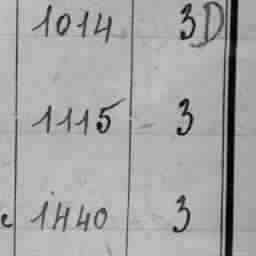 1014 3D
1115 3
c 1440 3